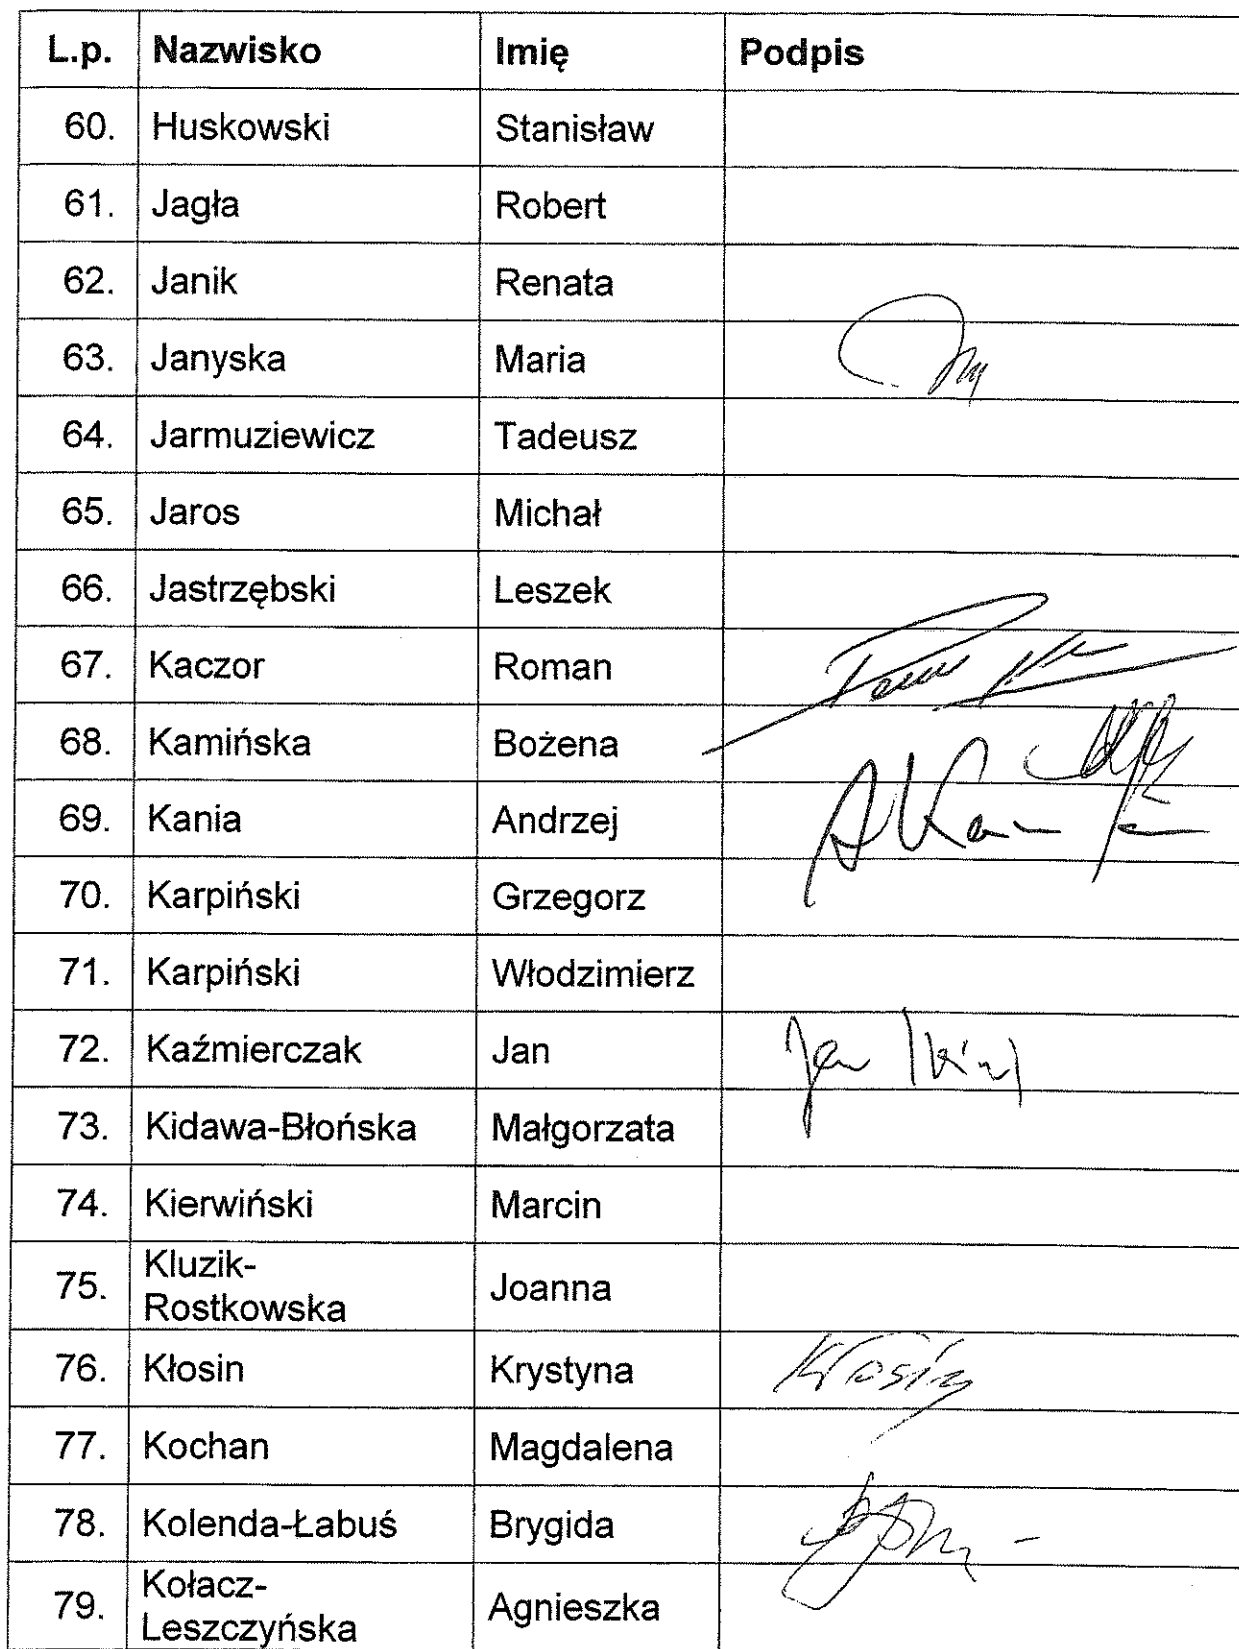 L.p. Nazwisko Imię Podpis
60. Huskowski Stanisław
61. Jagła Robert
62. Janik Renata
63. Janyska Maria
64. Jarmuziewicz Tadeusz
65. Jaros Michał
66. Jastrzębski Leszek
67. Kaczor Roman
68. Kamińska Bożena
69. Kania Andrzej
70. Karpiński Grzegorz
71. Karpiński Włodzimierz
72. Kaźmierczak Jan Jan
73. Kidawa-Błońska Małgorzata
74. Kierwiński Marcin
75. Kluzik-
Rostkowska Joanna
76. Kłosin Krystyna Kłosin
77. Kochan Magdalena
78. Kolenda-Łabuś Brygida
79. Kołacz-
Leszczyńska Agnieszka